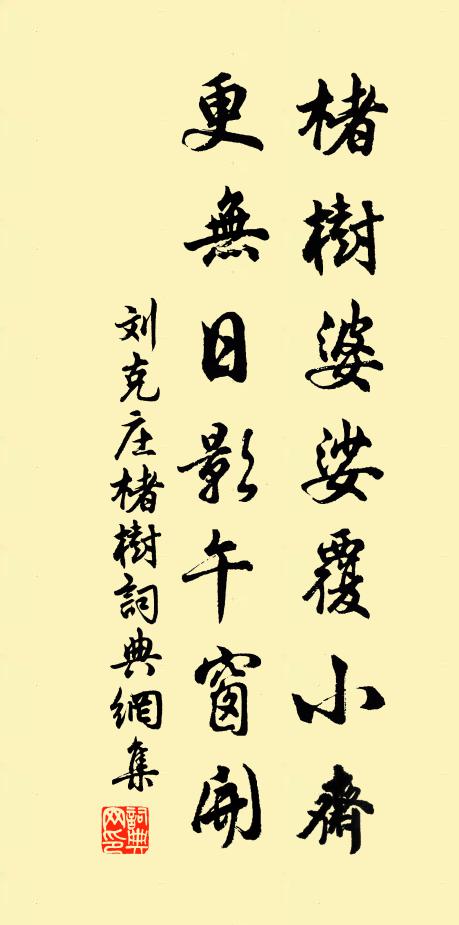 楮樹婆娑覆小齋
更無日影午窗開
刘克庄楮樹詞典網集
詞典网印